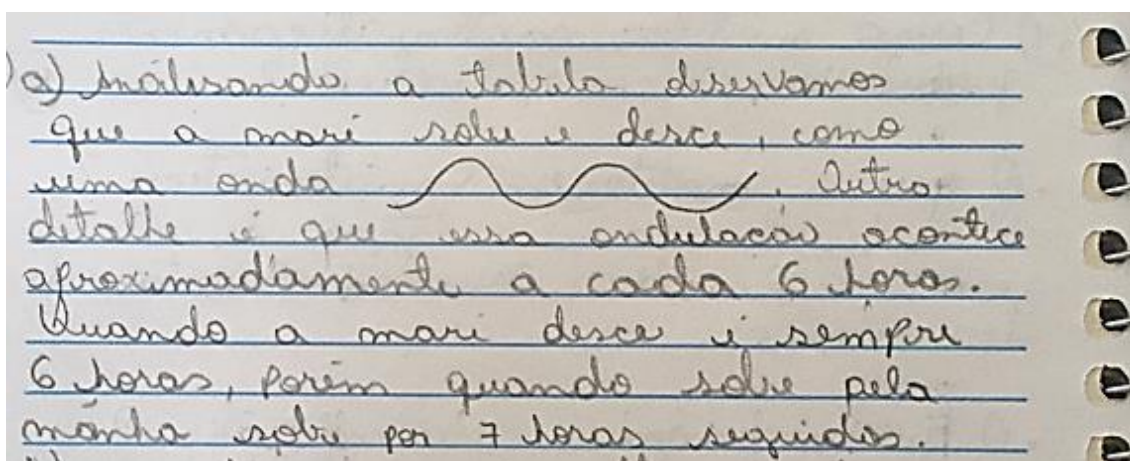 a) Análisando a tabela observamos
que a maré sobe e desce, como
uma onda . Outro
detalhe é que essa ondulação acontece
aproximadamente a cada 6 horas.
Quando a maré desce é sempre
6 horas, porém quando sobe pela
manhã sobe por 7 horas seguidas.